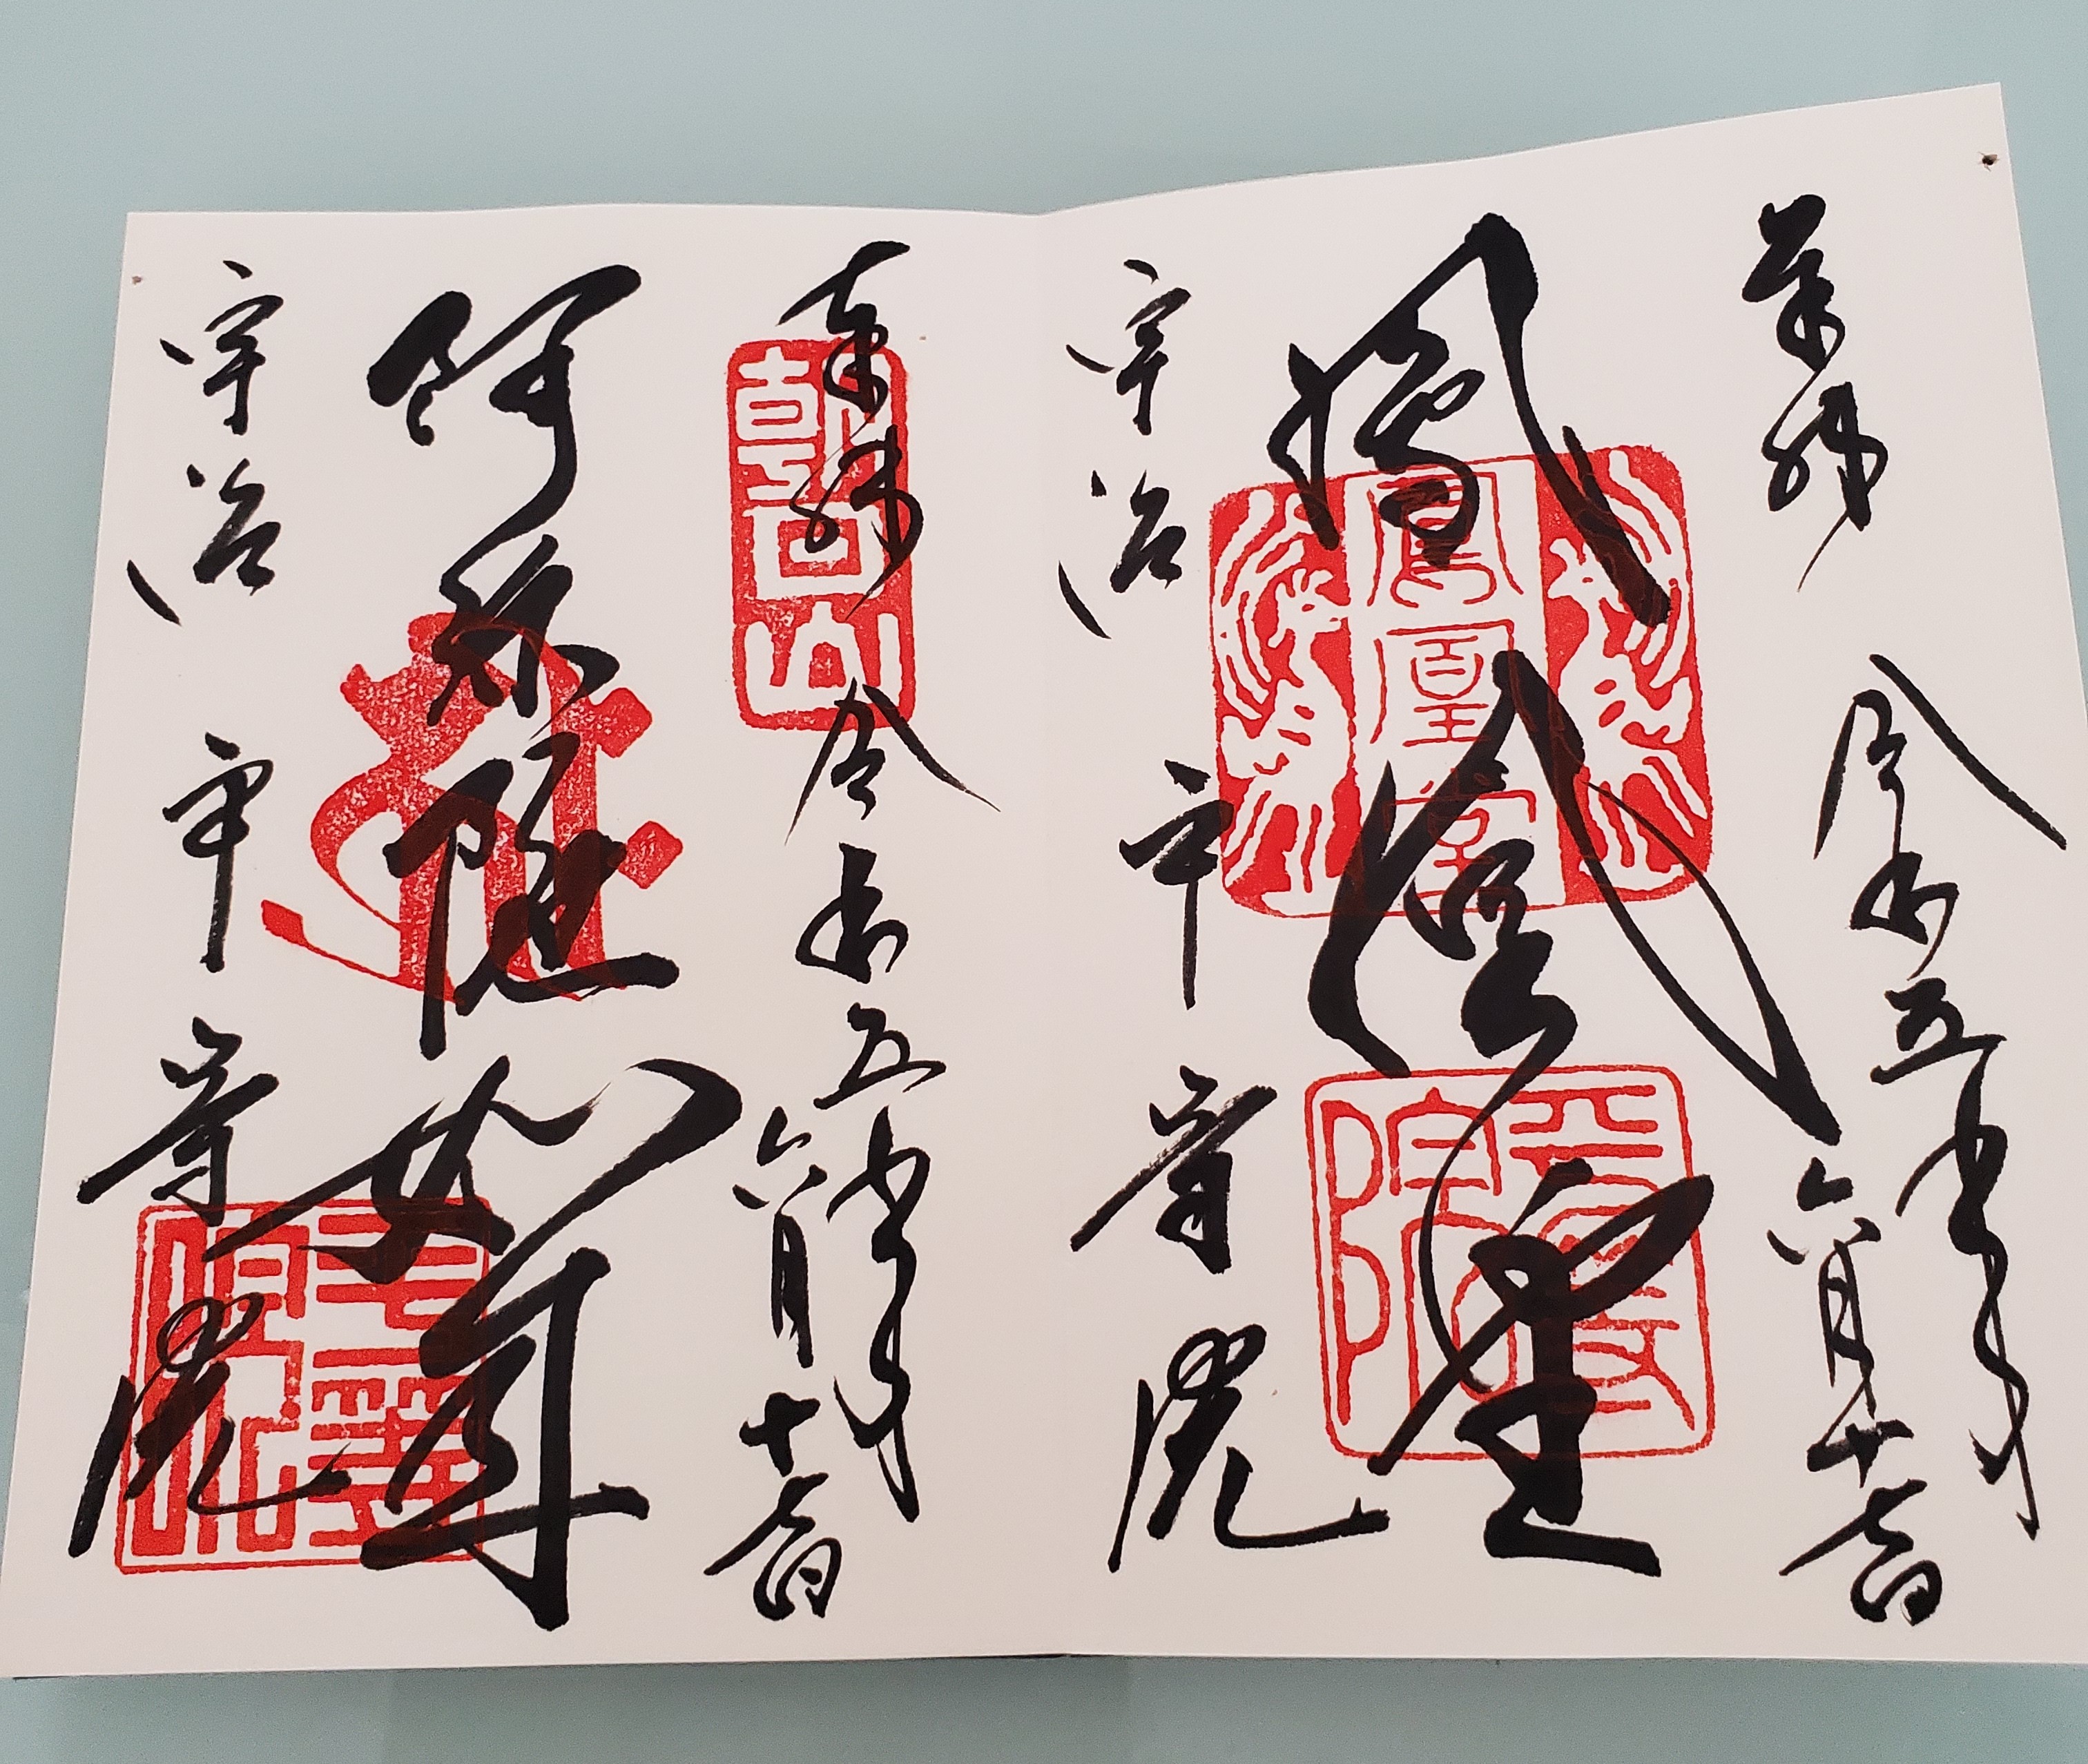 奉拝
令和五年六月十
鳳凰堂
宇治 平等院
鳳凰堂
平等院
奉拝
令和五年六月十
阿弥陀如来
宇治 平等院
朝日山
平等院